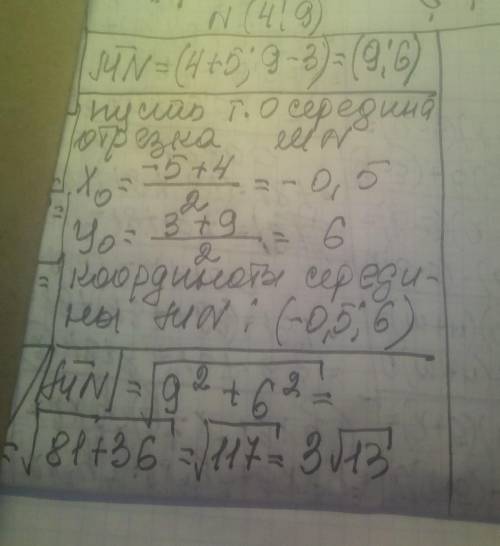 N (4; 9)
MN = (4+5; 9-3) = (9; 6)
пусть т. О середина
отрезка MN
X₀ = (-5+4)/2 = -0,5
У₀ = (3+9)/2 = 6
координаты середи-
ны MN: (-0,5; 6)
|MN| = √(9² + 6²) =
= √(81+36) = √117 = 3√13